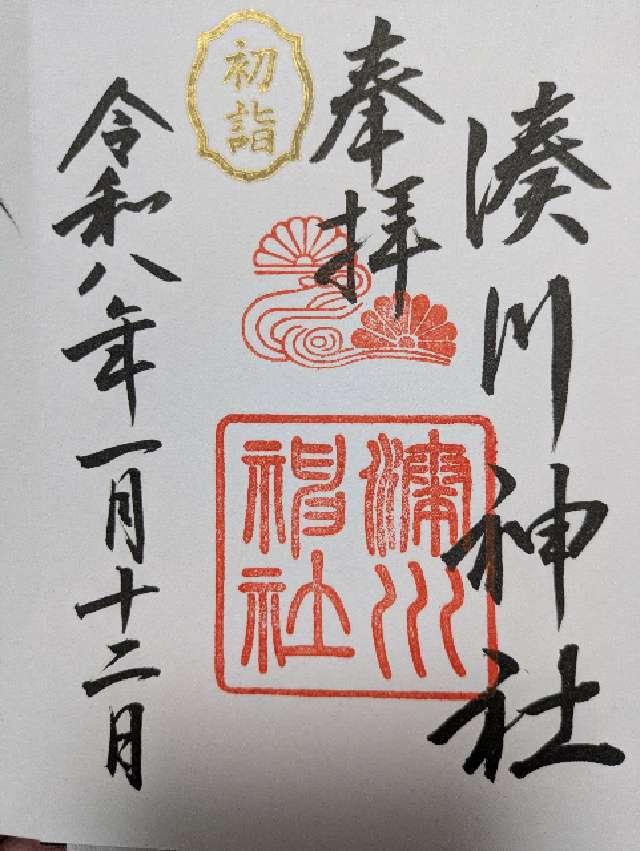 湊川神社
奉拝
初詣
湊川
神社
令和八年一月十二月